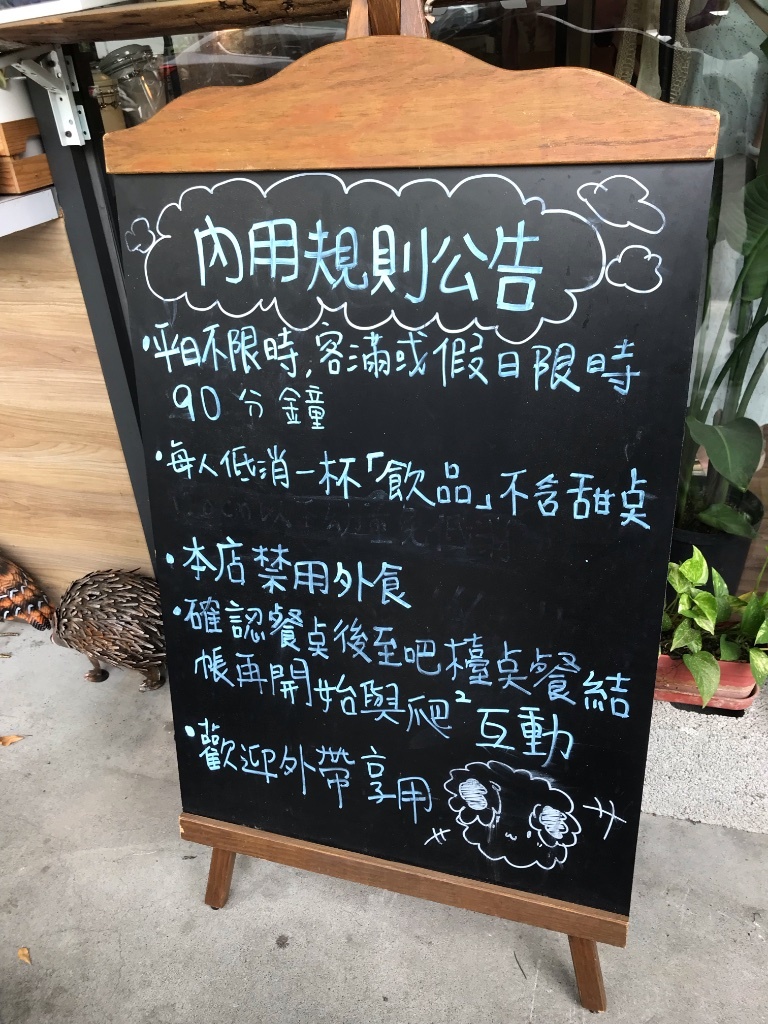 內用規則公告
·平日不限時,客滿或假日限時
90分鐘
·每人低消一杯「飲品」不含甜桌
·本店禁用外食
·確認餐桌後至吧檯桌餐結
帳再開始與爬²互動
·歡迎外帶享用